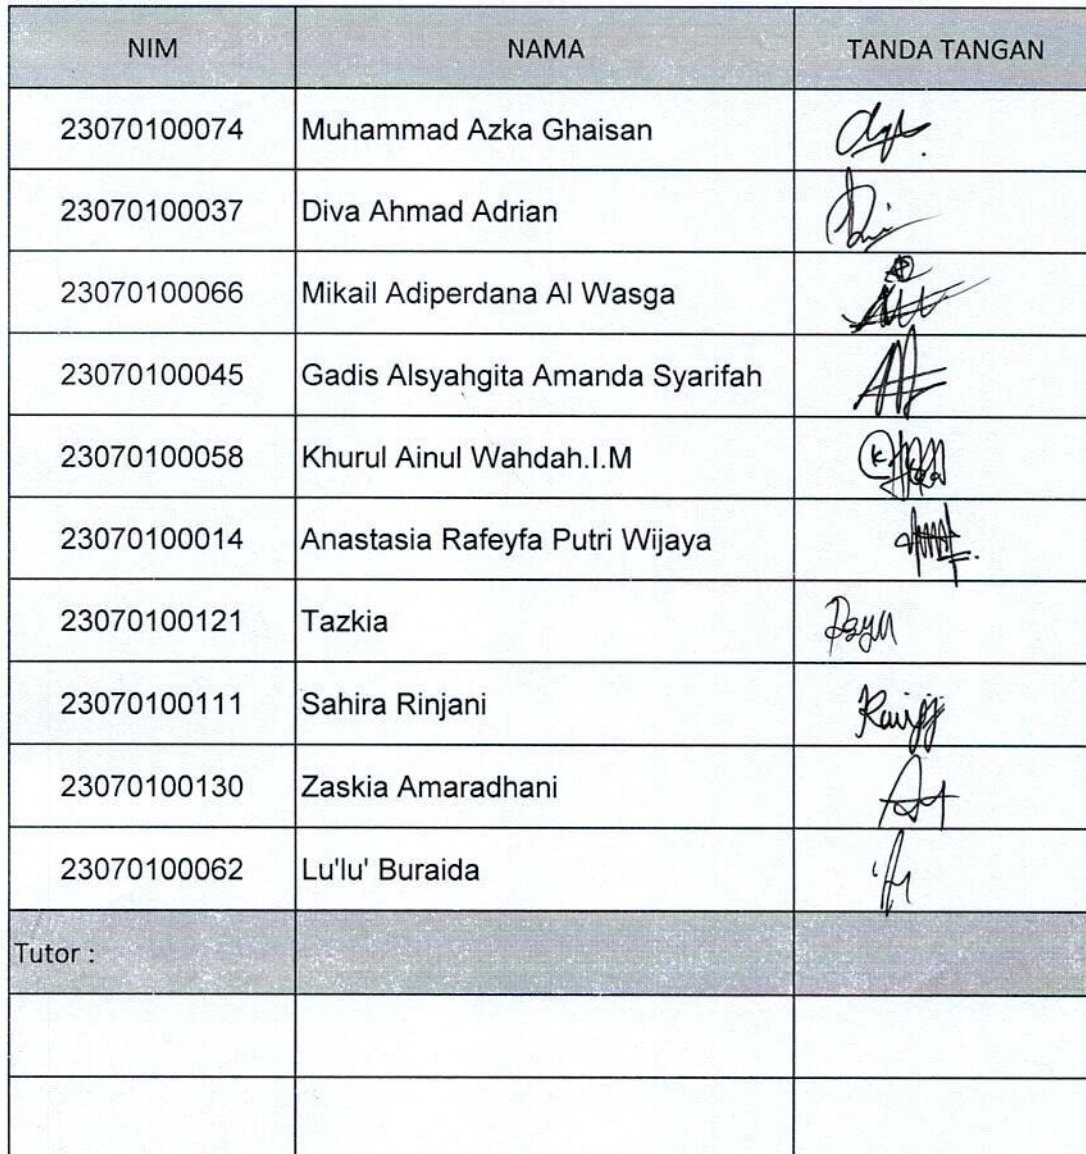 NIM NAMA TANDA TANGAN
23070100074 Muhammad Azka Ghaisan
23070100037 Diva Ahmad Adrian
23070100066 Mikail Adiperdana Al Wasga
23070100045 Gadis Alsyahgita Amanda Syarifah
23070100058 Khurul Ainul Wahdah.I.M
23070100014 Anastasia Rafeyfa Putri Wijaya
23070100121 Tazkia
23070100111 Sahira Rinjani
23070100130 Zaskia Amaradhani
23070100062 Lu'lu' Buraida
Tutor :